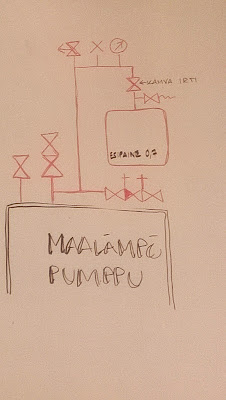 KAHVA IRTI
ESIPAINE 0,7
MAALÄMPÖ
PUMPPU